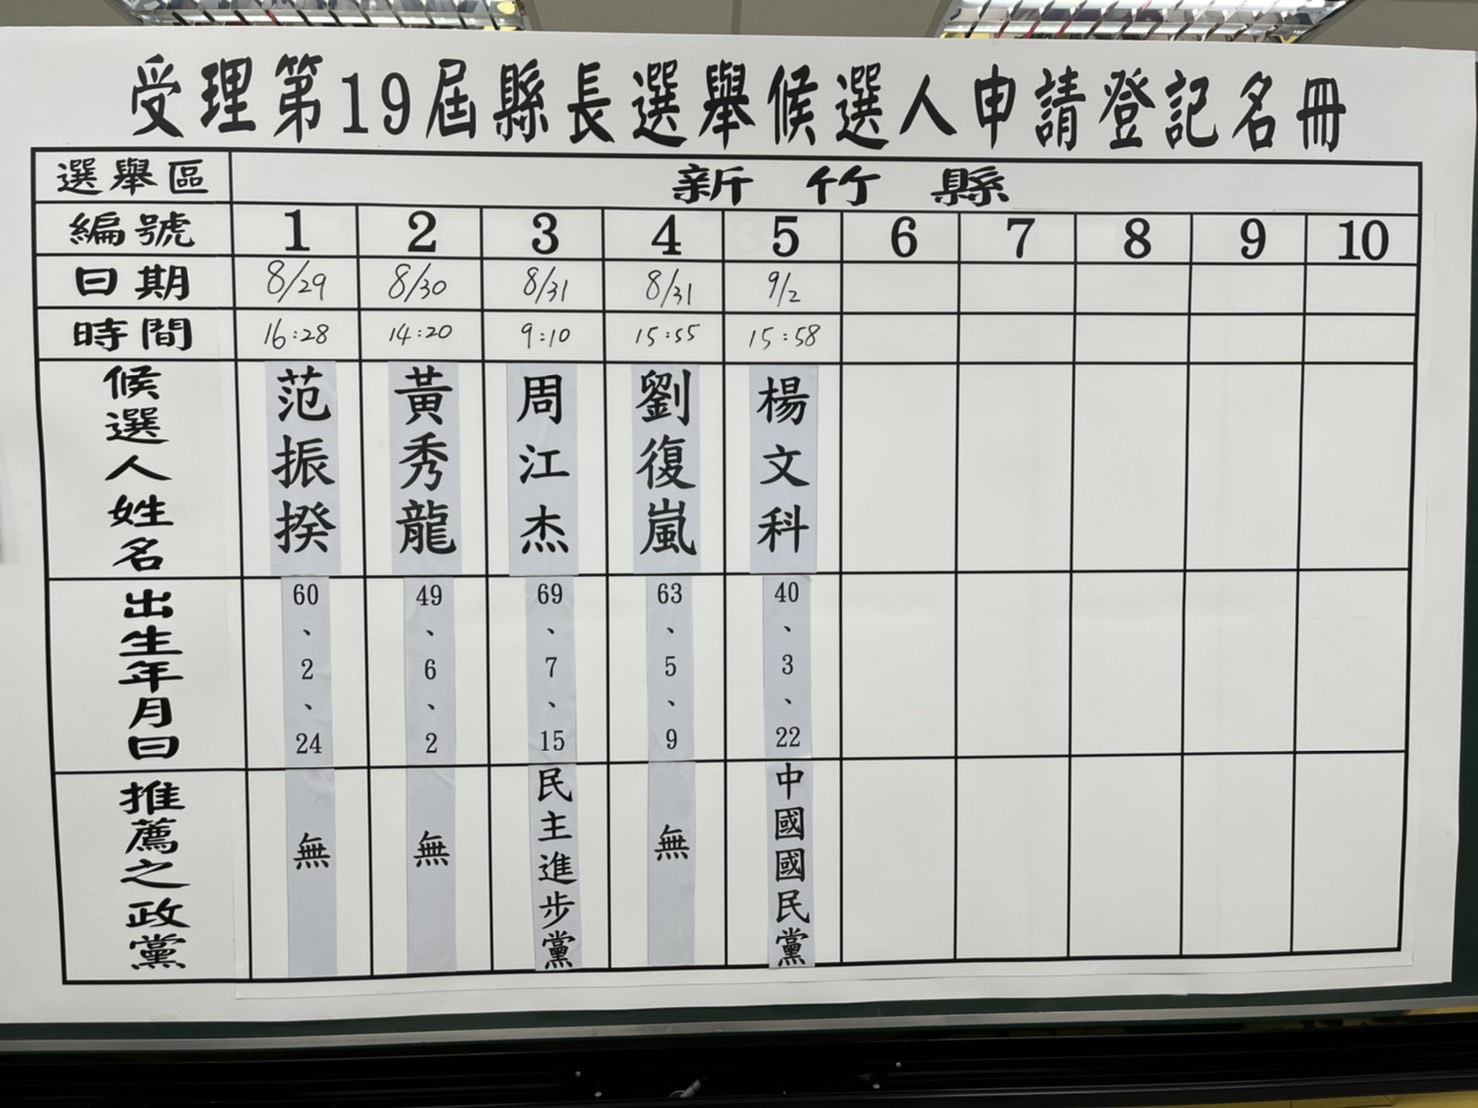 受理第19屆縣長選舉候選人申請登記名冊
選舉區 新竹縣
編號 1 2 3 4 5 6 7 8 9 10
日期 8/29 8/30 8/31 8/31 9/2
時間 16:28 14:20 9:10 15:55 15:58
候選人姓名 范振揆 黃秀龍 周江杰 劉復嵐 楊文科
出生年月日 60、2、24 49、6、2 69、7、15 63、5、9 40、3、22
推薦之政黨 無 無 民主進步黨 無 中國國民黨